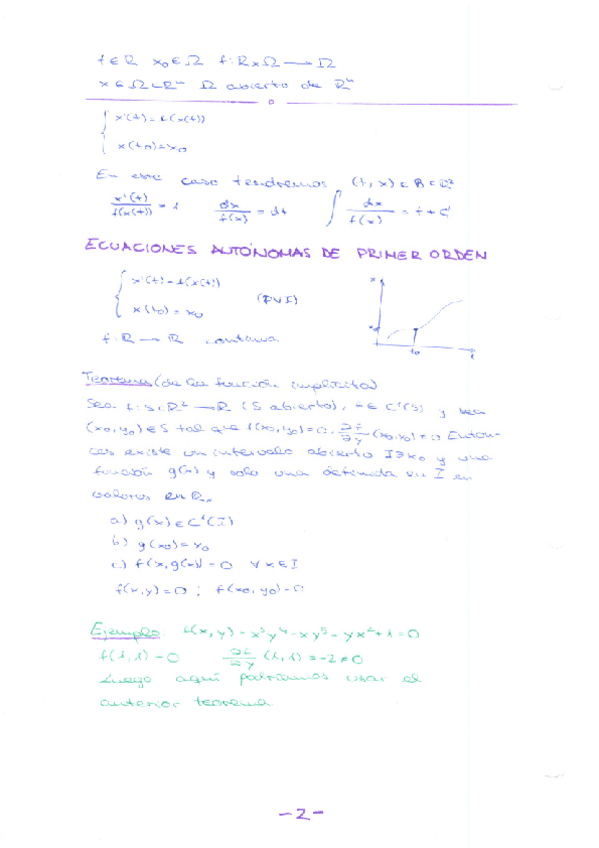 t ∈ R x₀ ∈ Ω f: R x Ω ⟶ Ω
x ∈ Ω ⊂ Rⁿ Ω abierto de Rⁿ
x'(t) = f(x(t))
x(t₀) = x₀
En este caso tendremos (t, x) ∈ B ⊂ R²
x'(t)/f(x(t)) = 1 dx/f(x) = dt ∫ dx/f(x) = t + C
ECUACIONES AUTÓNOMAS DE PRIMER ORDEN
x'(t) = f(x(t))
x(t₀) = x₀ (PVI)
f: R ⟶ R continua
x
x₀
t₀
t
Teorema (de la función implícita)
Sea f: S ⊂ R² ⟶ R (S abierto), f ∈ C¹(S) y sea
(x₀, y₀) ∈ S tal que f(x₀, y₀) = 0, ∂f/∂y (x₀, y₀) ≠ 0 Enton-
ces existe un intervalo abierto I ∋ x₀ y una
función g(x) y solo una definida en I en
valores en R,
a) g(x) ∈ C¹(I)
b) g(x₀) = y₀
c) f(x, g(x)) = 0 ∀ x ∈ I
f(x, y) = 0 ; f(x₀, y₀) = 0
Ejemplo: f(x, y) = x³y⁴ - xy⁵ - yx² + 1 = 0
f(1, 1) = 0 ∂f/∂y (1, 1) = -2 ≠ 0
Luego aquí podríamos usar el
anterior teorema
- 2 -